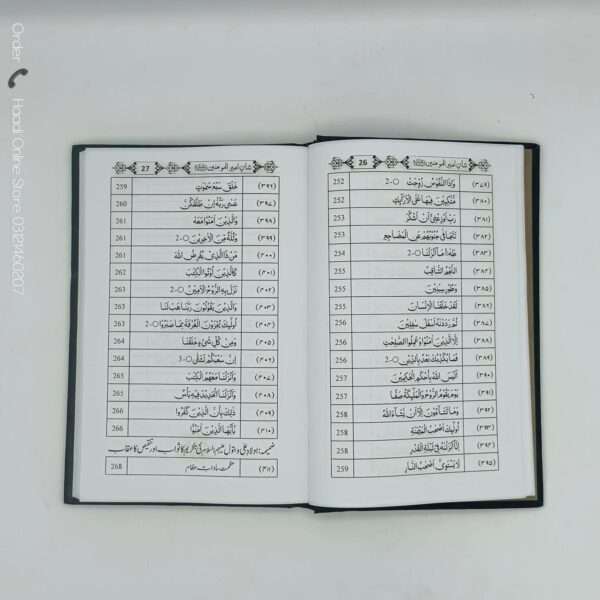 Order 📞 Haadi Online Store 03121460207
شانِ امیر المومنین 26
(۳۷۹) وَإِذَا النُّفُوسُ زُوِّجَتْ ○-2 252
(۳۸۰) مُتَّكِئِينَ فِيهَا عَلَى الْأَرَائِكِ 252
(۳۸۱) رَبِّ أَوْزِعْنِي أَنْ أَشْكُرَ 253
(۳۸۲) تَتَجَافَى جُنُوبُهُمْ عَنِ الْمَضَاجِعِ 253
(۳۸۳) طه ○ مَا أَنْزَلْنَا ○-2 254
(۳۸۴) النَّجْمُ الثَّاقِبُ 255
(۳۸۵) وَطُورِ سِينِينَ 255
(۳۸۶) لَقَدْ خَلَقْنَا الْإِنْسَانَ 255
(۳۸۷) ثُمَّ رَدَدْنَاهُ أَسْفَلَ سَافِلِينَ 256
(۳۸۸) إِلَّا الَّذِينَ آمَنُوا وَعَمِلُوا الصَّالِحَاتِ 256
(۳۸۹) فَمَا يُكَذِّبُكَ بَعْدُ بِالدِّينِ ○-2 256
(۳۹۰) أَلَيْسَ اللَّهُ بِأَحْكَمِ الْحَاكِمِينَ 257
(۳۹۱) يَوْمَ يَقُومُ الرُّوحُ وَالْمَلَائِكَةُ صَفًّا 257
(۳۹۲) وَمَا تَشَاءُونَ إِلَّا أَنْ يَشَاءَ اللَّهُ 258
(۳۹۳) أُولَئِكَ أَصْحَابُ الْمَيْمَنَةِ 258
(۳۹۴) إِنَّا أَنْزَلْنَاهُ فِي لَيْلَةِ الْقَدْرِ 258
(۳۹۵) لَا يَسْتَوِي أَصْحَابُ النَّارِ 259
شانِ امیر المومنین 27
(۳۹۶) خَلَقَ سَبْعَ سَمَوَاتٍ 259
(۳۹۷) عَسَى رَبُّهُ إِنْ طَلَّقَكُنَّ 260
(۳۹۸) وَالَّذِينَ آمَنُوا مَعَهُ 261
(۳۹۹) وَثُلَّةٌ مِنَ الْآخِرِينَ ○-2 261
(۴۰۰) مَنْ ذَا الَّذِي يُقْرِضُ اللَّهَ 261
(۴۰۱) كَالَّذِينَ أُوتُوا الْكِتَابَ 262
(۴۰۲) نَزَلَ بِهِ الرُّوحُ الْأَمِينُ ○-2 263
(۴۰۳) وَالَّذِينَ يَقُولُونَ رَبَّنَا هَبْ لَنَا 263
(۴۰۴) أُولَئِكَ يُجْزَوْنَ الْغُرْفَةَ بِمَا صَبَرُوا ○-2 263
(۴۰۵) وَمِنْ كُلِّ شَيْءٍ خَلَقْنَا 264
(۴۰۶) إِنَّ سَعْيَكُمْ لَشَتَّى ○-3 264
(۴۰۷) وَأَنْزَلْنَا مَعَهُمُ الْكِتَابَ 265
(۴۰۸) وَأَنْزَلْنَا الْحَدِيدَ فِيهِ بَأْسٌ 265
(۴۰۹) ذَلِكَ بِأَنَّ الَّذِينَ كَفَرُوا 266
(۴۱۰) يَا أَيُّهَا الَّذِينَ آمَنُوا 266
ضمیمہ: اولادِ علی و بتول علیہم السلام کی تکریم کا ثواب اور تنقیص کا عقاب
(۴۱۱) عظمتِ ساداتِ عظام 268